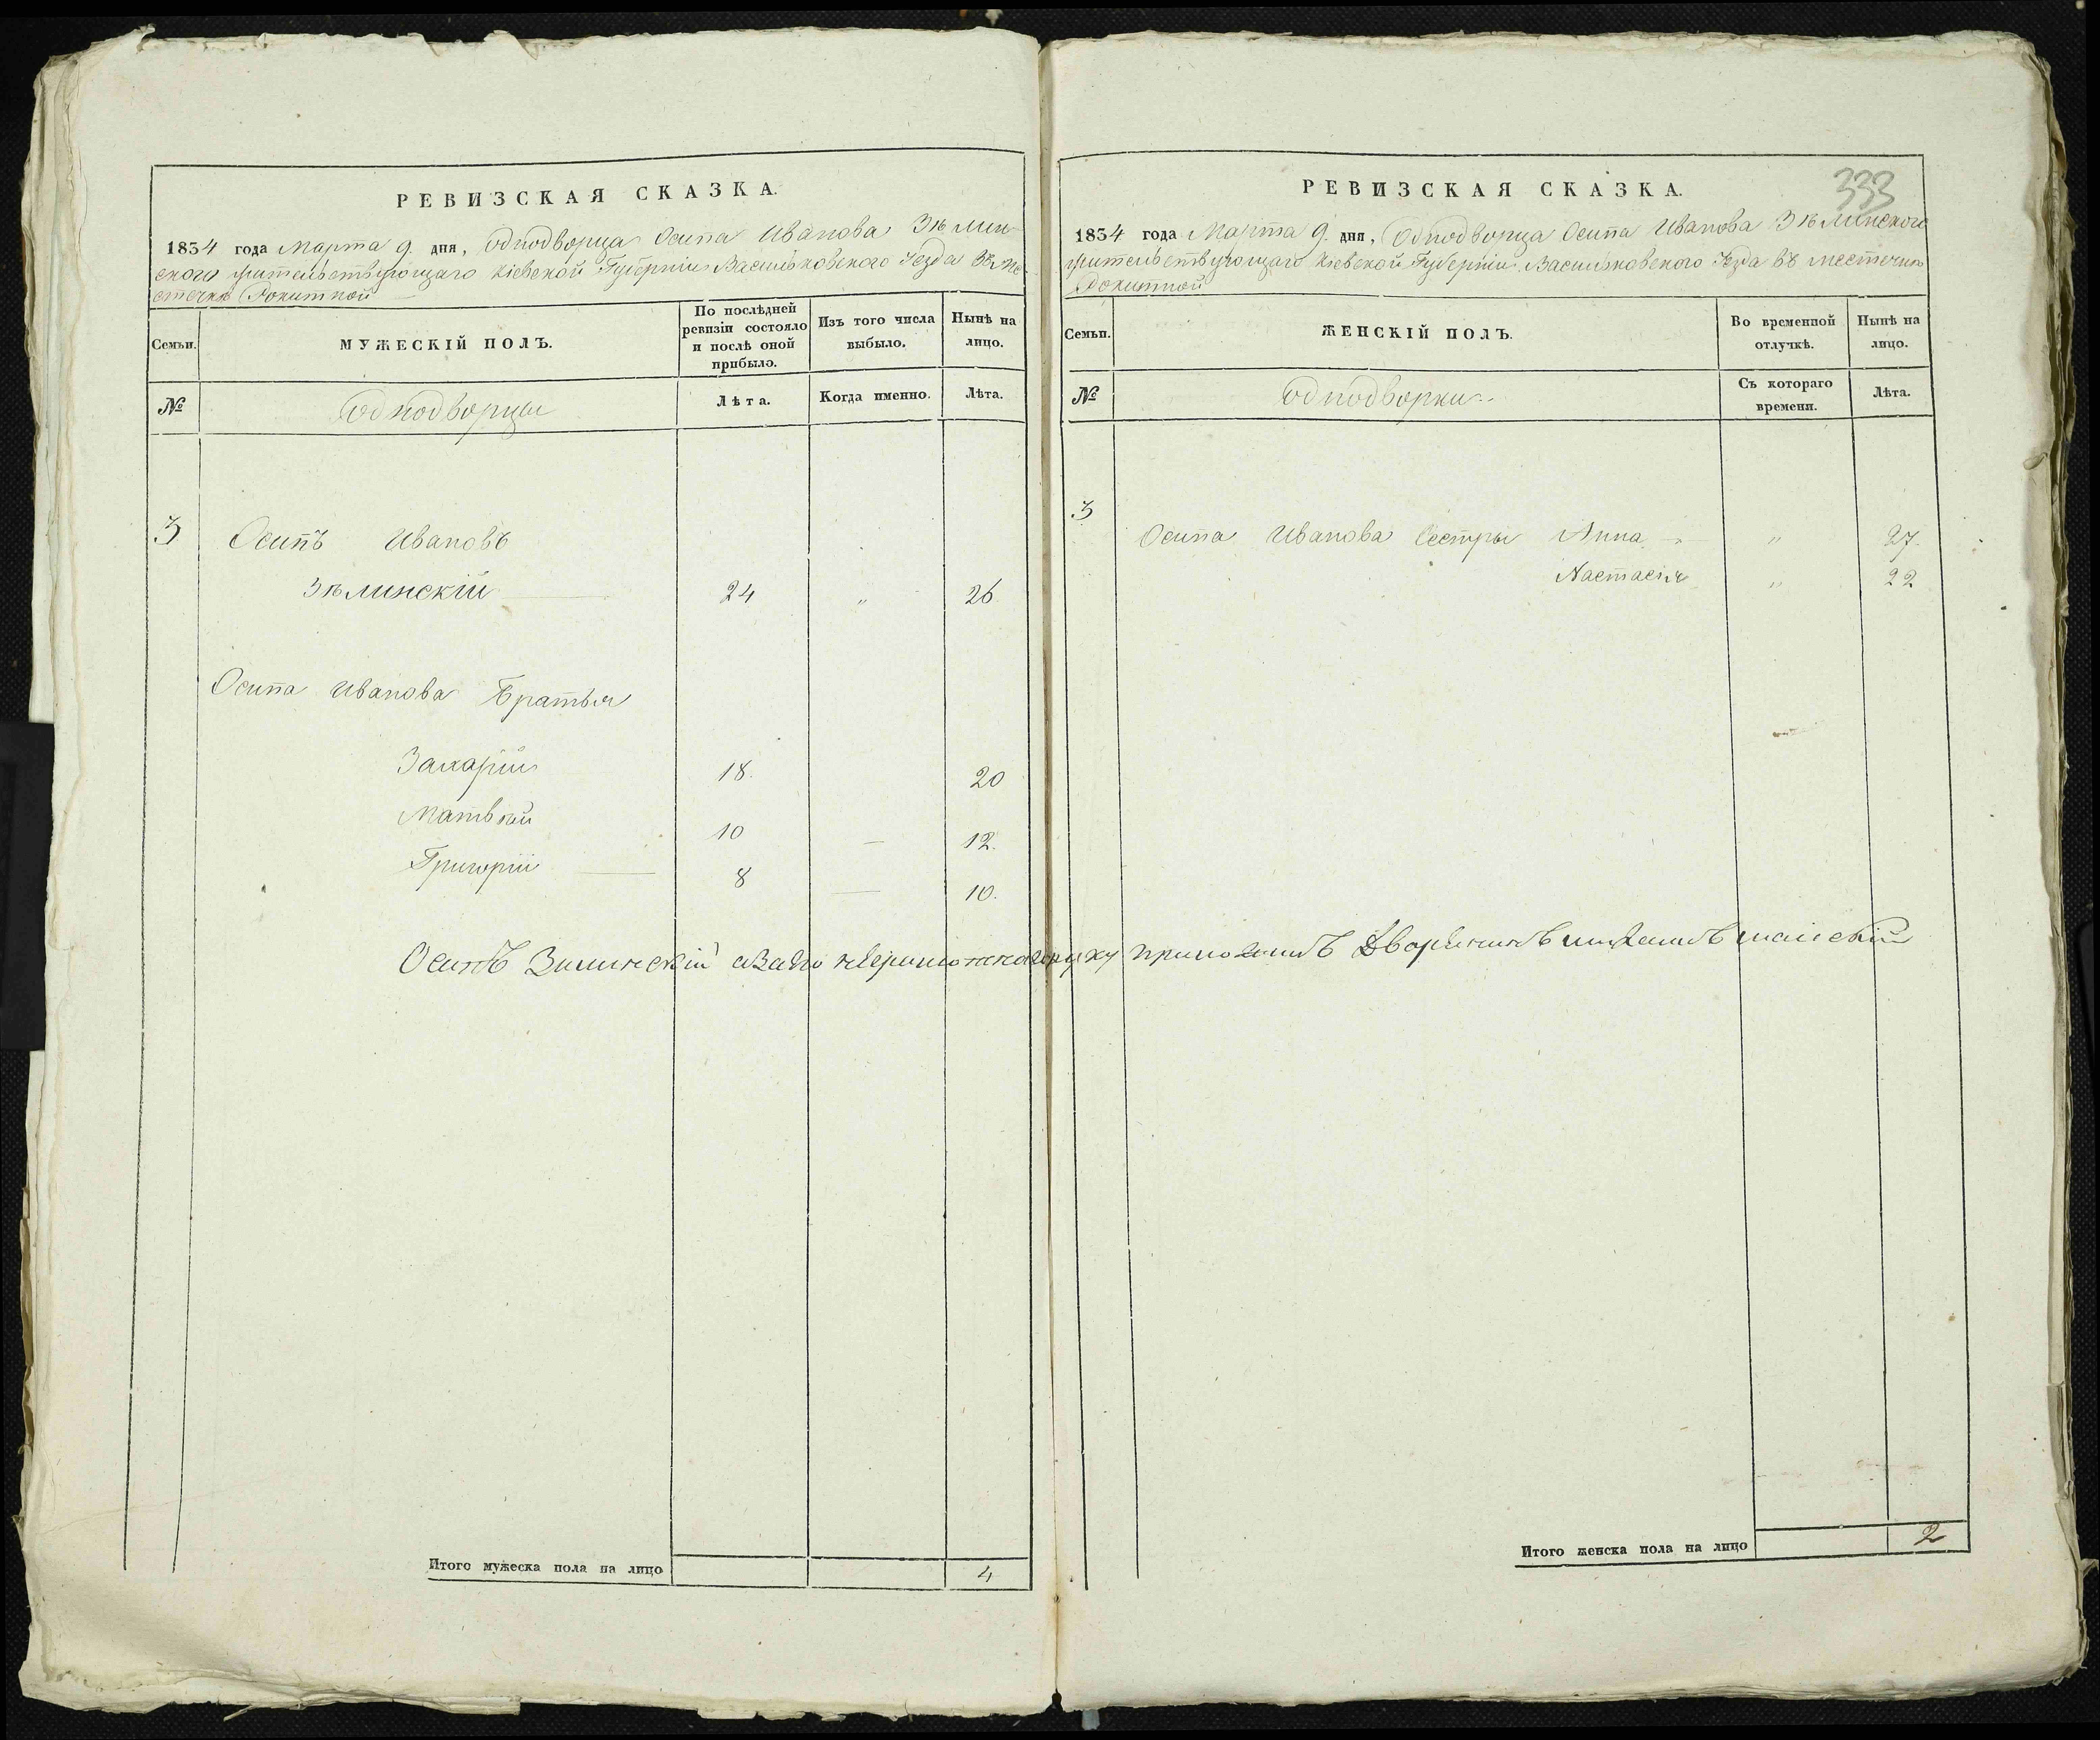 РЕВИЗСКАЯ СКАЗКА.
1834 года Марта 9. дня, Однодворца Осипа Иванова Зѣлин-
ского жительствующаго Кіевской Губерніи Васильковского Уезда въ Ме-
стечкѣ Рокитной
Семьи.
МУЖЕСКІЙ ПОЛЪ.
По послѣдней
ревизіи состояло
и послѣ оной
прибыло.
Изъ того числа
выбыло.
Нынѣ на
лицо.
№
Однодворцы
Лѣта.
Когда именно.
Лѣта.
3 Осипъ Ивановъ
Зѣлинскій 24 „ 26
Осипа Иванова Братья
Захарій 18. 20
Матвѣй 10 — 12.
Григорій 8 — 10.
Осипъ Зилинскій азаего руку приложилъ Дворенинъ
Итого мужеска пола на лицо 4
РЕВИЗСКАЯ СКАЗКА.
333
1834 года Марта 9. дня, Однодворца Осипа Иванова Зѣлинского
жительствующаго Кіевской Губерніи Васильковского Уезда въ местечкѣ
Рокитной
Семьи.
ЖЕНСКІЙ ПОЛЪ.
Во временной
отлучкѣ.
Нынѣ на
лицо.
№
Однодворки
Съ котораго
времени.
Лѣта.
3
Осипа Иванова Сестры Анна „ 27.
Настасія „ 22
Итого женска пола на лицо 2